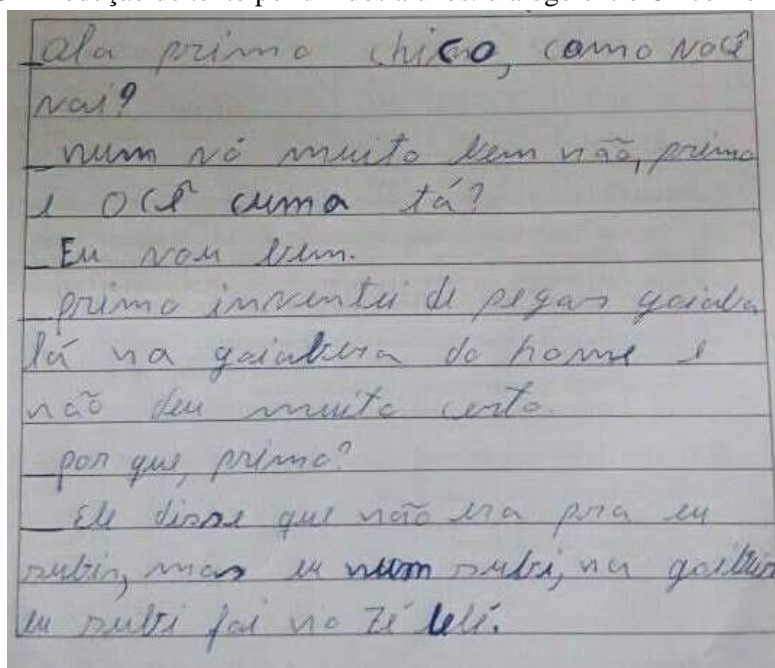 _Ola primo chico, como você
vai?
_num vô muito bem não, primo
e ocê cuma tá?
_Eu vou bem.
_primo inventei de pegar goiaba
lá na goiabera do home e
não deu muito certo
_por que, primo?
_Ele disse que não era pra eu
subir, mas eu num subi, na
eu subi foi no Zé lelé.